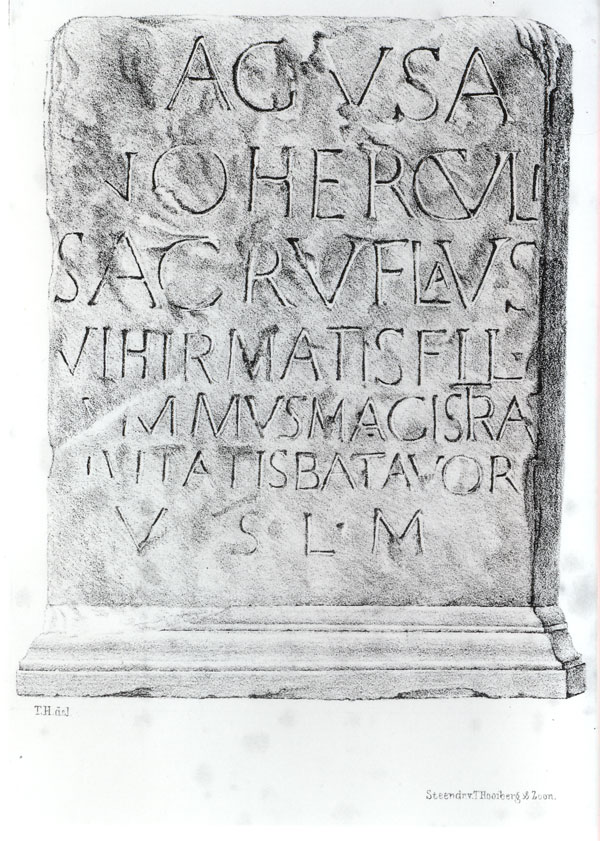 AGVSA
NOHERCVLI
SACRVFLAVS
VIHIRMATISFIL
MMVSMAGISTRA
IVITATISBATAVOR
V S L · M
T.H. del.
Steendr. v. T. Hooiberg & Zoon.